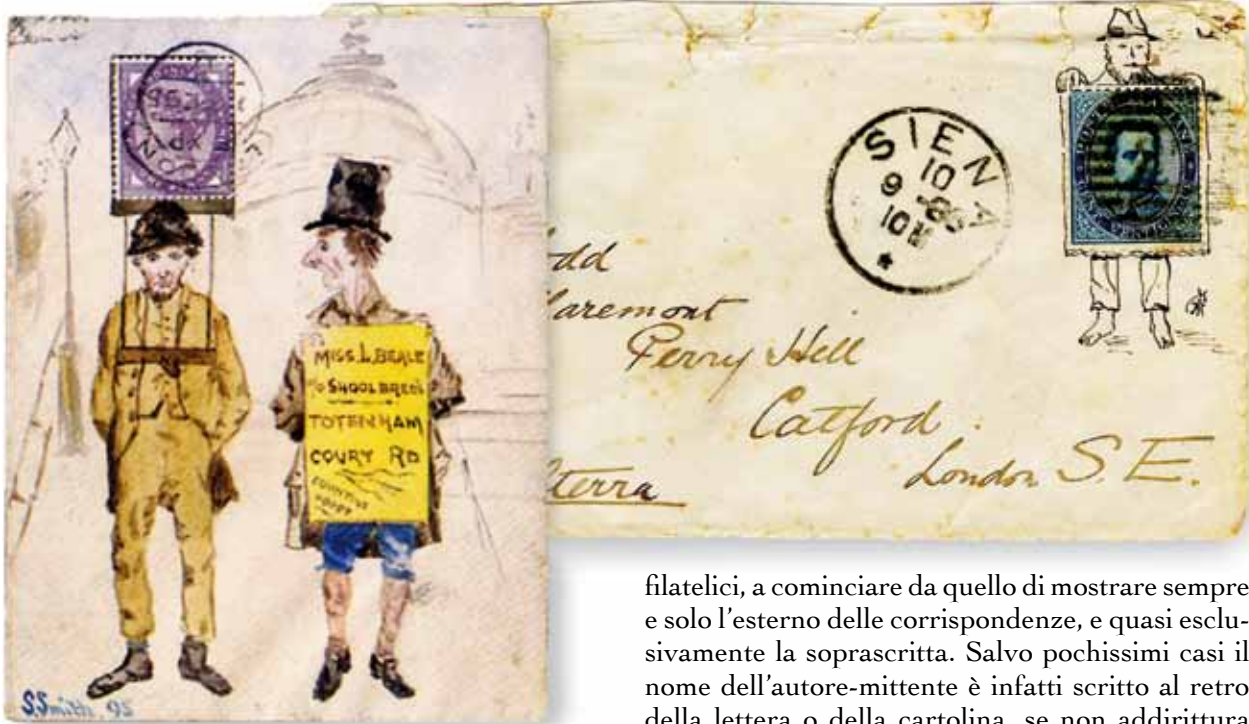 MISS. L. BEALE
SHOOLBRED'S
TOTENHAM
COURT RD
S. Smith 95
SIENA
10
9
10M
aremont
Perry Hill
Catford.
London S. E.
terra
filatelici, a cominciare da quello di mostrare sempre
e solo l'esterno delle corrispondenze, e quasi esclu-
sivamente la soprascritta. Salvo pochissimi casi il
nome dell'autore-mittente è infatti scritto al retro
della lettera o della cartolina, se non addirittura